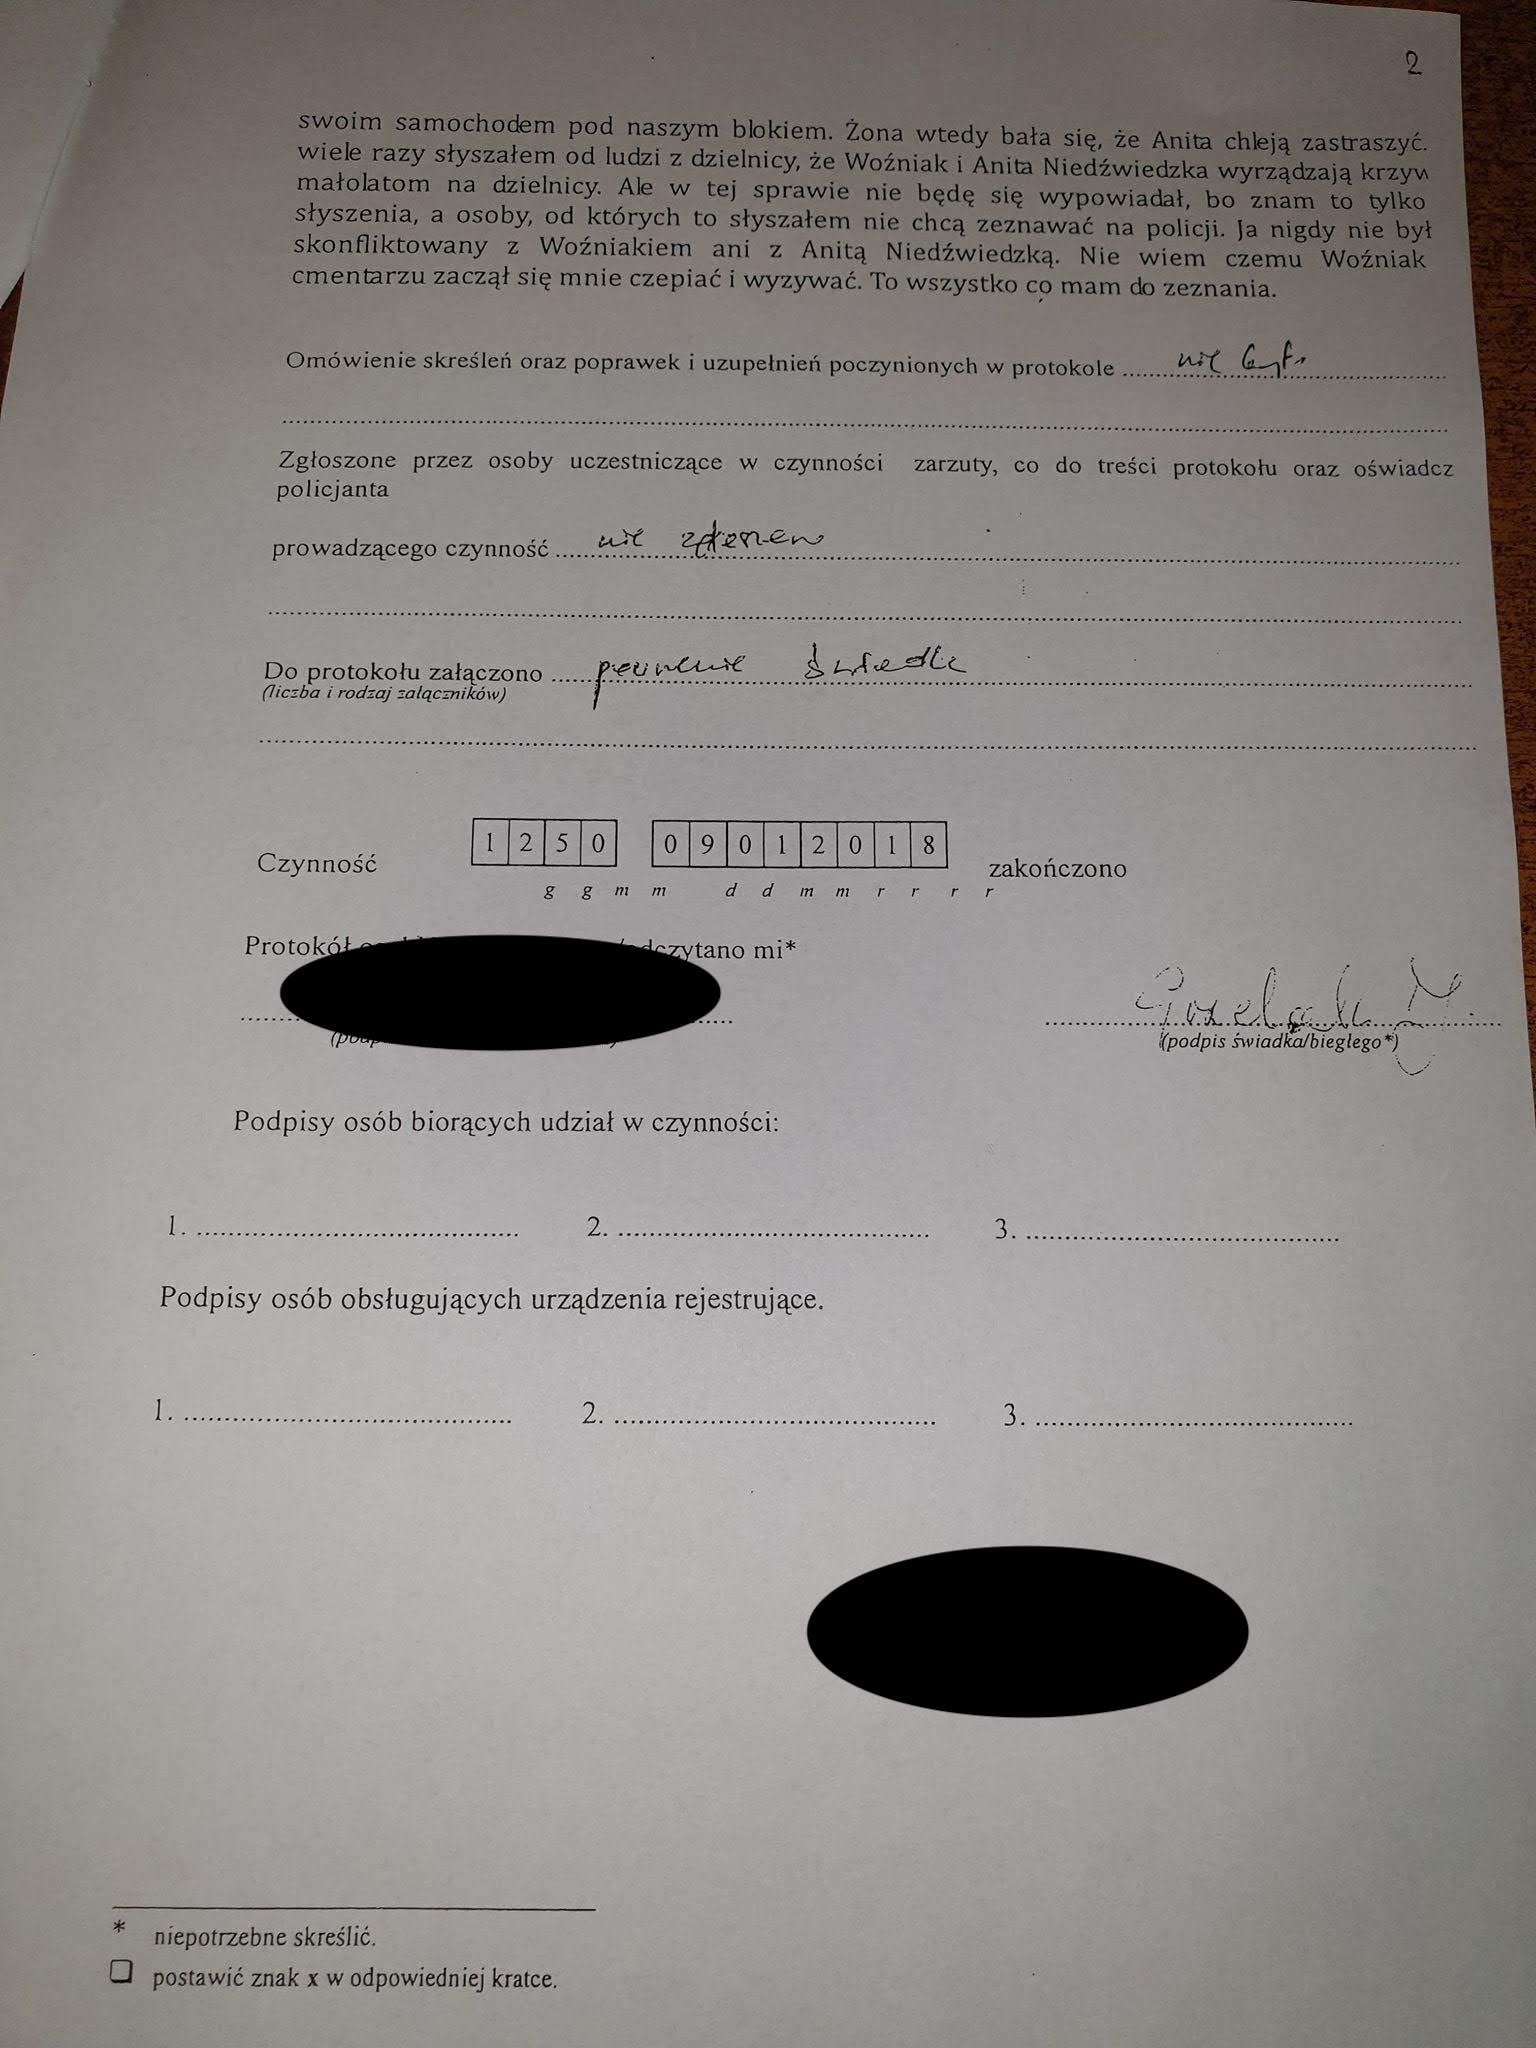 2
swoim samochodem pod naszym blokiem. Żona wtedy bała się, że Anita chleją zastraszyć.
wiele razy słyszałem od ludzi z dzielnicy, że Woźniak i Anita Niedźwiedzka wyrządzają krzyw
małolatom na dzielnicy. Ale w tej sprawie nie będę się wypowiadał, bo znam to tylko
słyszenia, a osoby, od których to słyszałem nie chcą zeznawać na policji. Ja nigdy nie był
skonfliktowany z Woźniakiem ani z Anitą Niedźwiedzką. Nie wiem czemu Woźniak
cmentarzu zaczął się mnie czepiać i wyzywać. To wszystko co mam do zeznania.
Omówienie skreśleń oraz poprawek i uzupełnień poczynionych w protokole ..... nie było
Zgłoszone przez osoby uczestniczące w czynności zarzuty, co do treści protokołu oraz oświadcz
policjanta
prowadzącego czynność ..... nie
Do protokołu załączono ..... pouczenie świadka
(liczba i rodzaj załączników)
Czynność 1250 09012018 zakończono
g g m m d d m m r r r r
Protokół /odczytano mi*
(podpis świadka/biegłego*)
Podpisy osób biorących udział w czynności:
1. ..... 2. ..... 3. .....
Podpisy osób obsługujących urządzenia rejestrujące.
1. ..... 2. ..... 3. .....
* niepotrzebne skreślić.
☐ postawić znak x w odpowiedniej kratce.